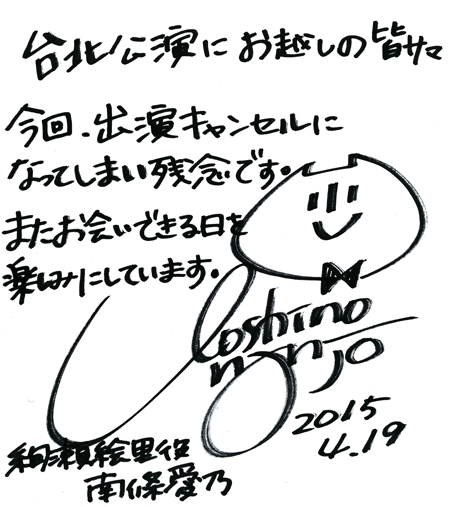 台北公演にお越しの皆サマ
今回、出演キャンセルに
なってしまい残念です。
またお会いできる日を
楽しみにしています。
Yoshino
Nanjo
2015
4.19
絢瀬絵里役
南條愛乃